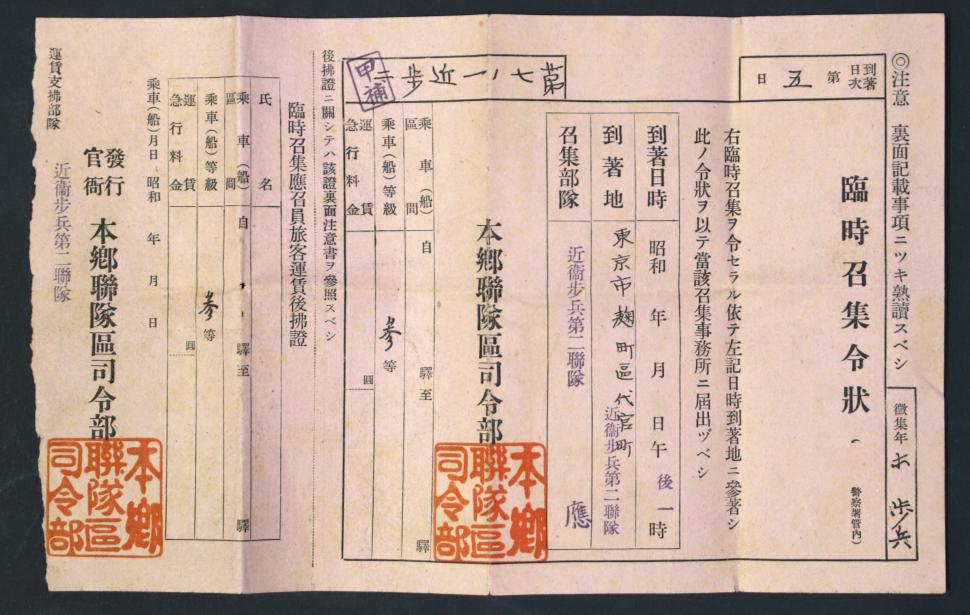 ◎注意　裏面記載事項ニツキ熟讀スベシ
徵集年　歩兵
臨時召集令狀
（警察署管内）
到著日次　第五日
右臨時召集ヲ令セラル依テ左記日時到著地ニ參著シ
此ノ令狀ヲ以テ當該召集事務所ニ屆出ヅベシ
到著日時　昭和　年　月　日午後一時
到著地　東京市麹町區代官町
近衞步兵第二聯隊
召集部隊　近衞步兵第二聯隊　應
第七八一近歩二
甲補
本鄕聯隊區司令部
本鄕聯隊區司令部
乘車（船）區間　自　驛至　驛
乘車（船）等級　參等
運賃
急行料金　圓
後拂證ニ關シテハ該證裏面注意書ヲ參照スベシ
臨時召集應召員旅客運賃後拂證
氏名
乘車（船）區間　自　驛至　驛
乘車（船）等級　參等
運賃
急行料金　圓
乘車（船）月日　昭和　年　月　日
發行官衙　本鄕聯隊區司令部
本鄕聯隊區司令部
運賃支拂部隊　近衞步兵第二聯隊